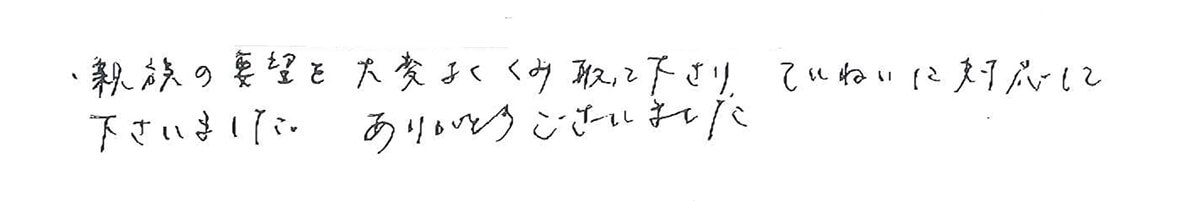 ・親族の要望を大変よくくみ取って下さり ていねいに対応して
下さいました。 ありがとうございました